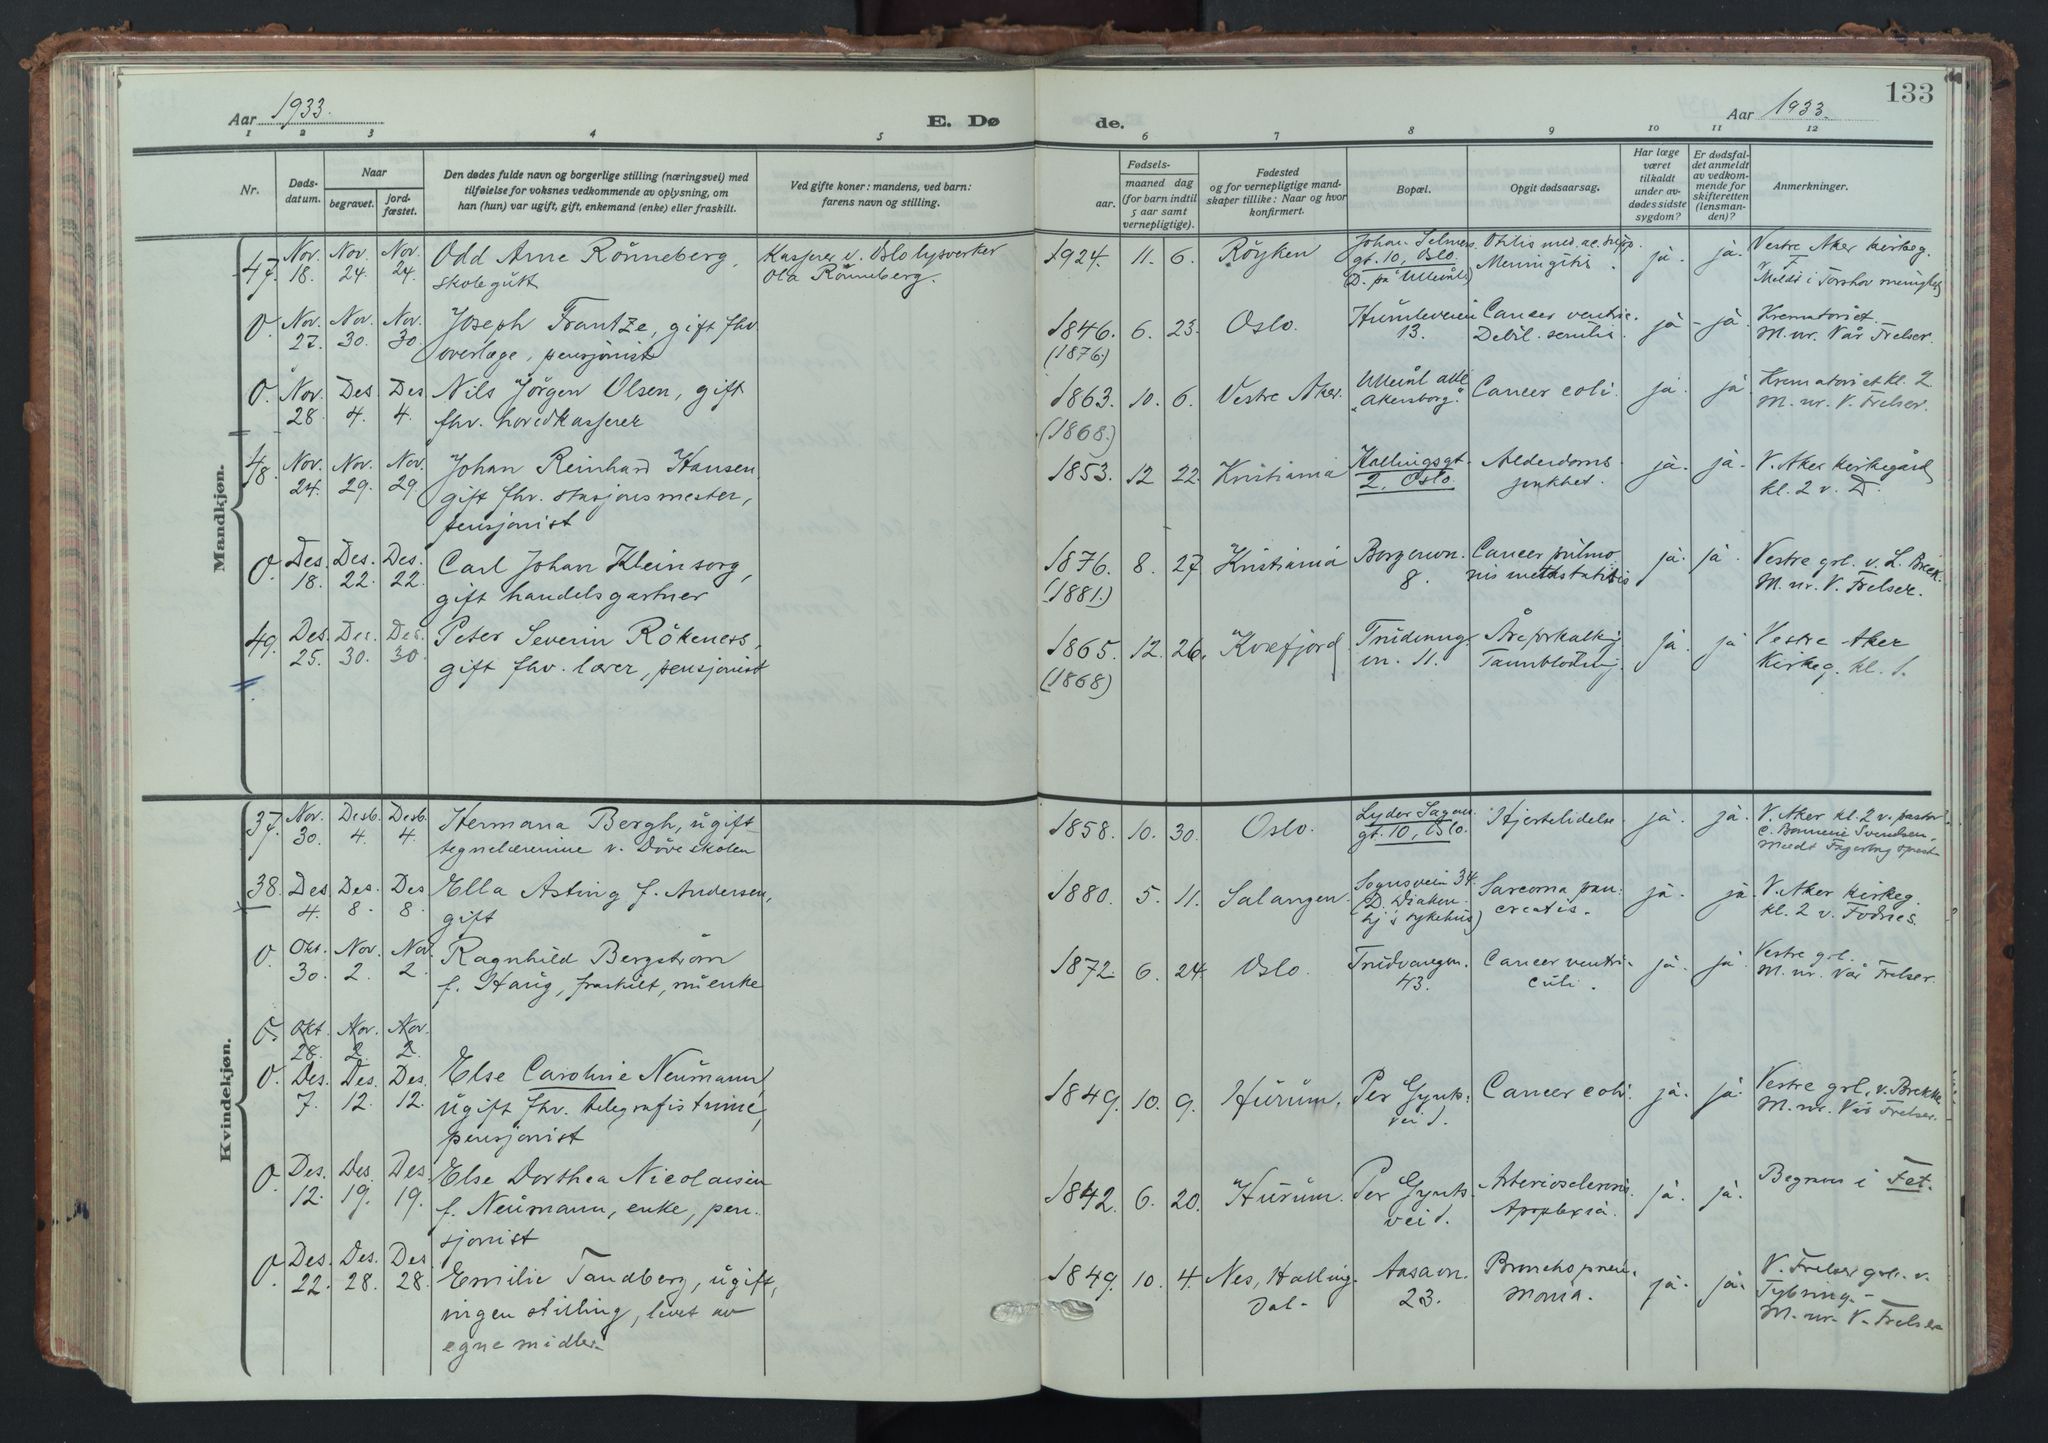 133
Aar 1933.
E. Dø de.
Aar 1933.
1 2 3 4 5 6 7 8 9 10 11 12
Nr.
Døds-
datum.
Naar
begravet.
jord-
fæstet.
Den dødes fulde navn og borgerlige stilling (næringsvei) med
tilføielse for voksnes vedkommende av oplysning, om
han (hun) var ugift, gift, enkemand (enke) eller fraskilt.
Ved gifte koner: mandens, ved barn:
farens navn og stilling.
Fødsels-
aar.
maaned dag
(for barn indtil
5 aar samt
vernepligtige).
Fødested
og for vernepligtige mand-
skaper tillike: Naar og hvor
konfirmert.
Bopæl.
Opgit dødsaarsag.
Har læge
været
tilkaldt
under av-
dødes sidste
sygdom?
Er dødsfal-
det anmeldt
av vedkom-
mende for
skifteretten
(lensman-
den)?
Anmerkninger.
Mandkjøn.
47. Nov. 18. Nov. 24. Nov. 24. Odd Arne Rönneberg, Kasserer v. Oslo lysverker 1924. 11. 6. Röyken Johan Selmers Otitis med. ac. supp. ja. ja. Vestre Aker kirkeg.
skolegutt Ola Rönneberg. gt. 10, Oslo. Meningitis. v. F
(D. på Ullevål) Meldt i Torshov menighet
0 Nov. 27. Nov. 30. Nov. 30. Joseph Frantze, gift fhv. 1846. 6. 23. Oslo. Humleveien Cancer ventric. ja - ja. Krematoriet.
overlæge, pensjonist (1876.) 13. Debil. senilis. M. nr. Vår Frelser.
0. Nov. 28. Des 4. Des 4. Nils Jörgen Olsen, gift 1863. 10. 6. Vestre Aker. Ullevål allé Cancer coli. ja. ja Krematoriet kl. 2.
fhv. hovedkasserer (1868.) "Akersborg". M. nr. V. Frelser.
48. Nov. 24. Nov. 29. Nov. 29 Johan Reinhard Hansen 1853. 12 22. Kristiania Kallingsgt. Alderdoms ja. ja. V. Aker kirkegård
gift fhv. stasjonsmester, 2, Oslo. svakhet. kl. 2 v. D.
pensjonist
0. Des. 18. Des. 22. Des. 22 Carl Johan Kleinsorg, 1876. 8. 27. Kristiania Borgenvn. Cancer pulmo ja. ja. Vestre grl. v. L. Brek.
gift handelsgartner (1881.) 8. nis metastatitis M. nr. V. Frelser.
49. Des. 25. Des. 30. Des. 30 Peter Severin Rökenes, 1865. 12. 26. Kvæfjord Trudvang Åreforkalkng ja. ja Vestre Aker
gift fhv. lærer, pensjonist (1868) vn. 11. Kirkeg. kl. 1.
Kvindekjøn.
37. Nov. 30. Desb. 4. Desb. 4. Hermana Bergh, ugift 1858. 10. 30. Oslo. Lyder Sagens Hjertelidelse. ja. ja. V. Aker kl. 2 v. pastor
tegnelærerinne v. Döveskolen gt. 10, Oslo. C. Svendsen.
Meldt Fagerborg
38. Des. 4. Des. 8. Des 8. Ella Asting f. Andersen, 1880. 5. 11. Salangen. Sognsvein 34. Sarcoma pan- ja. ja. V. Aker kirkeg.
gift (D. Diakon. creatis. kl. 2 v. Fodnes.
hj's sykehus)
0. Okt. 30. Nov. 2. Nov. 2. Ragnhild Bergström 1872. 6. 24. Oslo. Trudvangvn. Cancer ventri- ja. ja. Vestre grl.
f. Haug, fraskilt, nu enke 43. culi. M. nr. Vår Frelser.
0. Okt. 28. Nov. 2. Nov. 2.
0. Des. 7. Des. 12. Des. 12. Else Caroline Neumann, 1849. 10. 9. Hurum. Per Gynts- Cancer coli. ja. ja. Vestre grl. v. Brekke
ugift fhv. telegrafistinne, vei 1. M. nr. Vår Frelser.
pensjonist
0. Des. 12. Des. 19. Des. 19. Else Dorthea Nicolaisen 1842. 6. 20. Hurum. Per Gynts- Arteriosclerosis. ja. ja. Begraves i Fet.
f. Neumann, enke, pen- vei 1. Apoplexia.
sjonist
0. Des. 22. Des. 28. Des 28. Emilie Tandberg, ugift, 1849. 10. 4. Nes, Halling- Aasavn. Bronchopneu- ja. ja. V. Frelser grl. v.
ingen stilling, levet av dal. 23. monia. Tybring.
egne midler. M. nr. V. Frelser